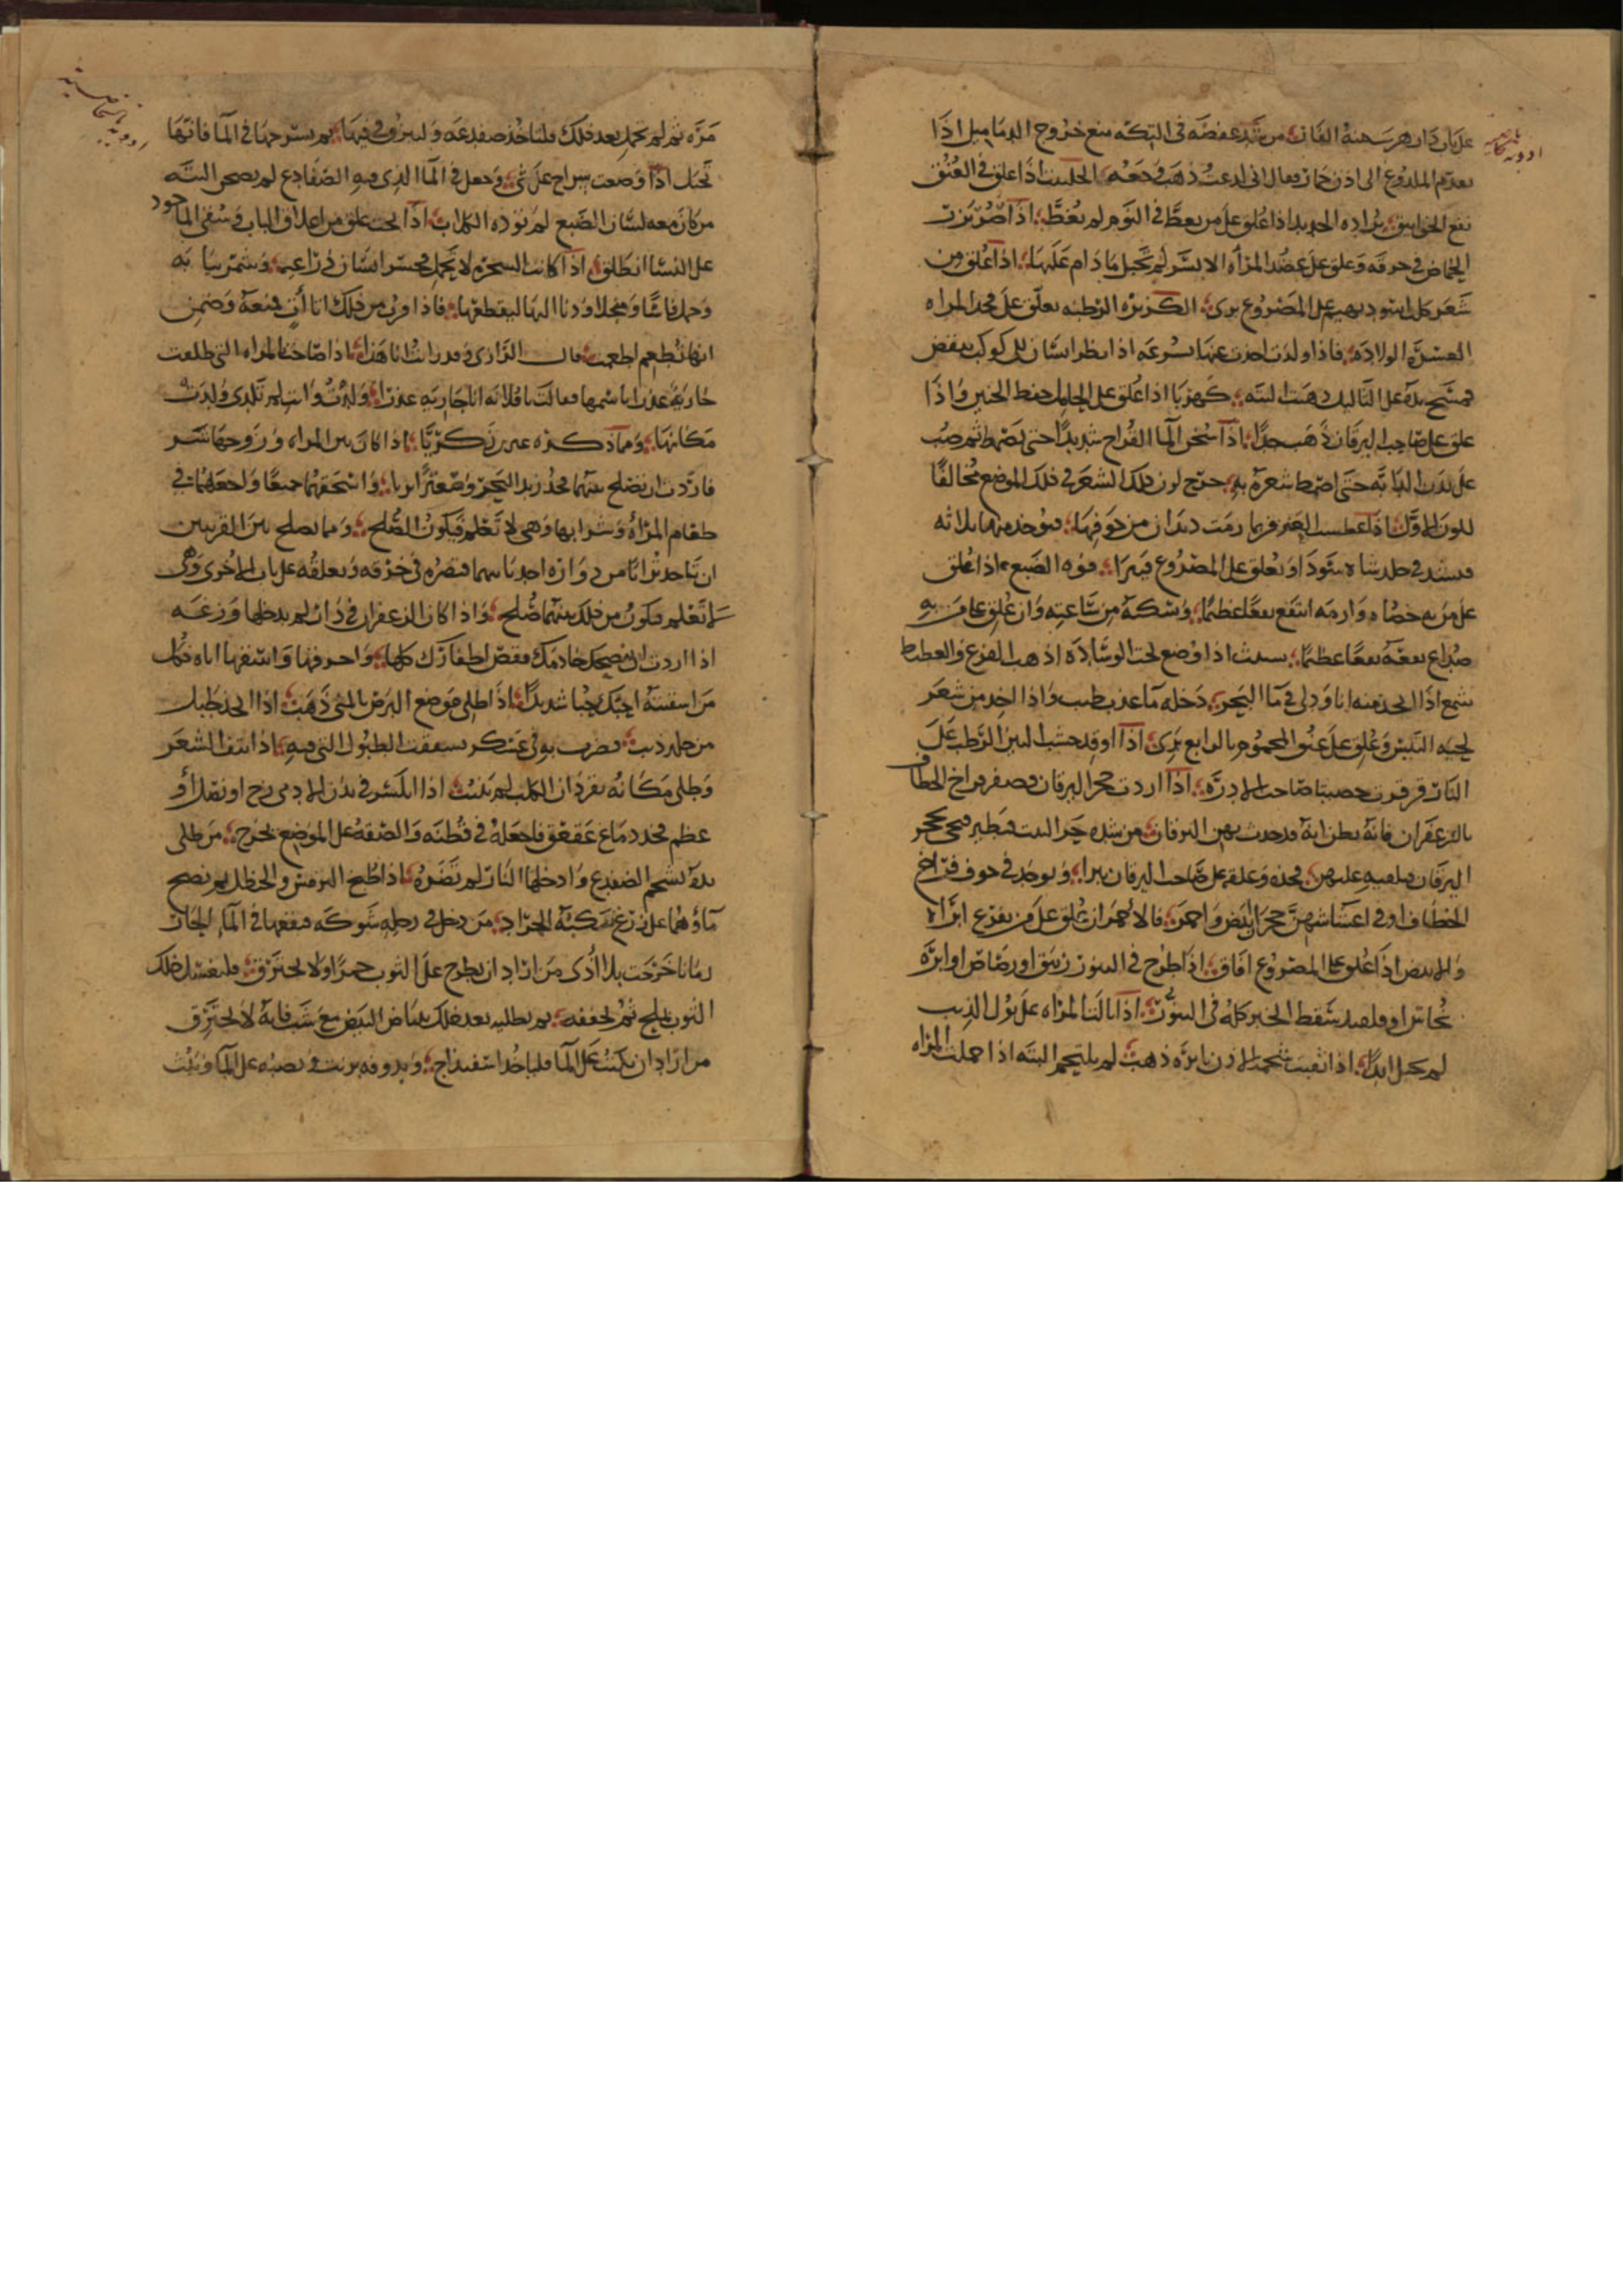 على باب دار هربت منه الفار من شد عفصه فى التكه منع خروج الدماميل اذا
تقدم الملدوغ الى اذن حمار فقال انى لدغت ذهب وجعه الحلتيت اذا علق فى العنق
نفع الخوانيق براده الحديد اذا علق على من يغط فى النوم لم يغط اذا صر بزر
الحماض فى خرقه وعلق على عضد المرأه الايسر لم تحبل ما دام عليها اذا علق من
شعر كلب اسود بهيم على المصروع برئ الكزبره الرطبه تعلق على فخذ المراه
العسره الولاده فاذا ولدت اخذت عنها بسرعه اذا نظر انسان الى كوكب ينقض
فمسح يده على الثاليل ذهبت البته كهربا اذا علق على الحامل حفظ الجنين واذا
علق على صاحب اليرقان ذهب جدا اذا سخن الما القراح شديدا حتى ثم صب
على بدن الدابه حتى شعره به خرج لون ذلك الشعر فى ذلك الموضع مخالفا
للون الاول اذا عطست العنز فربما رمت ديدان من جوفها فيوخذ منها ثلاثه
فيشد فى جلد شاه سودا ويعلق على المصروع فيبرا الضبع اذا علق
على من به حصاه وارمه انتفع نفعا عظيما وسكنه من ساعته وان علق على من به
صداع نفعه نفعا عظيما شبث اذا وضع تحت الوساده اذهب الفزع والغطيط
شمع اذا اتخذ منه انا ودلى فى ما البحر دخله ما عذب طيب واذا اخذ من شعر
لحيه التيس وعلق على عنق المحموم بالرابع برئ اذا اوقد خشب التين الرطب على
النار قرقرت صاحب الادره اذا اردت حجر اليرقان فصفر فراخ الخطاف
بالزعفران فانه يظن انه قد حدث بهن اليرقان من شده حر البيت فيطير فيجى بحجر
اليرقان فيلقيه عليهن فخذه وعلقه على صاحب اليرقان يبرا ويوخذ فى جوف فراخ
الخطاف او فى اعشاشهن حجران ابيض واحمر فالاحمر ان علق على من يفزع ابراه
والابيض اذا علق على المصروع افاق اذا طرح فى التنور زيبق او رصاص او ابره
نحاس او سقط الخبز كله فى التنور اذا بالت المراه على بول الذيب
لم تحبل ابدا اذا ثقبت شحمه الاذن بابره ذهب لم يلتحم البته اذا حملت المراه
مره ثم لم تحمل بعد ذلك فلتاخذ ضفدعه ولتبزق فى فيها ثم تسرحها فى الما فانها
تحبل اذا وضعت سراج على شى وجعل فى الما الذى فيه الضفادع لم يصحن البته
من كان معه لسان الضبع لم توذه الكلاب اذا علق من اغلاق الباب وسقى الماخود
على النسا انطلق اذا كانت الشجره لا تحمل فحسر انسان ذراعيه وشمر ثيابه
وحمل فاسا ومنجلا ودنا اليها ليقطعها فاذا قرب من ذلك اتا اخر فمنعه وضمن
انها تطعم اطعمت قال الرازى وقد رايت انا هذا اذا صاحت المراه التى طلعت
جاريه عذرا باسمها فقالت يا فلانه انا جاريه عذرا ولدت وانت لم تلدى ولدت
مكانها ومما ذكره عن زكريا اذا كان بين المراه وزوجها شر
فاردت ان تصلح بينهما فخذ زبد البحر وصعترا بريا واسحقهما جميعا واجعلهما فى
طعام المرأه وشرابها وهى لا تعلم فيكون الصلح ومما يصلح بين القريبين
ان تاخذ ترابا من دار احديهما فتصره فى خرقه وتعلقه على باب الاخرى وهى
لا تعلم فيكون من ذلك بينهما صلح واذا كان الزعفران فى دار لم يدخلها وزغه
اذا اردت ان خادمك فقص اظفارك كلها واحرقها واسقها اياه فكل
من اسقيته احبك حبا شديدا اذا اطلى موضع البرص بالمنى ذهب اذا اتخذ طبل
من جلد ذيب فضرب به فى عسكر تشققت الطبول التى فيه اذا نتف الشعر
وطلى مكانه بقردان الكلب لم ينبت اذا انكسر فى بدن الادمى زج او نصل او
عظم فخذ دماغ عقعق فاجعله فى قطنه والصقه على الموضع يخرج من طلى
يده بشحم الضفدع وادخلها النار لم تضره اذا طبخ الترمس والحنظل ثم نضح
ماؤهما على زرع نكبته الجراد من دخل فى رجله شوكه فنقعها فى الما الحار
زمانا خرجت بلا اذى من اراد ان يطرح على الثوب جمرا ولا يحترق فليغسل ذلك
الثوب بملح ثم تجففه ثم تطليه بعد ذلك ببياض البيض مع شب فانه لا يحترق
من اراد ان يكتب على الما فلياخذ اسفيداج ويدوفه بزيت ويصبه على الما ويكتب